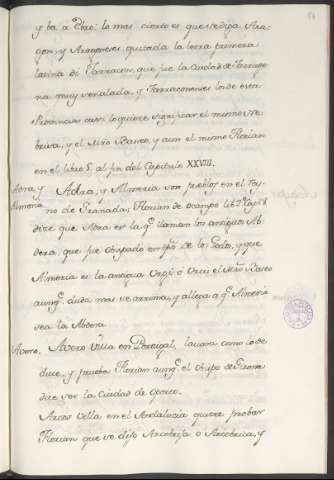 y ba a Ebro: lo mas cierto es que se dixo Ara-
gon, y Aragoneses, quitada la letra primera
latina de Tarracon, que fue la Ciudad de Tarrago
na muy señalada, y Tarraconenses los de esta
Provincia: assi lo quiere significar el mismo Ne-
brixa, y el Mro Vaseo, y aun el mismo Florian
en el libro 5. al fin del Capitulo XXVIII.
Adra, y Adra, y Almeria son pueblos en el Rey-
Almeria no de Granada; Florian de ocampo lib. 2. Cap.
dice que Adra es la q.e llaman los antiguos Ab
dera, que fue Obispado en tpo de los Godos, y que
Almeria es la antigua Urgi ó Urci el Mro Vaseo
aunq.e duda mas se arrima, y allega a q.e Almeria
sea la Abdera
Avero. Avero Villa en Portugal, Lauara como lo de
duce, y prueba Florian aunq.e el obispo de Girona
dice ser la Ciudad de oporto.
Arcos Villa en el Andalucia quiere probar
Florian que se dijo Arcobrija o Arcobrica, y